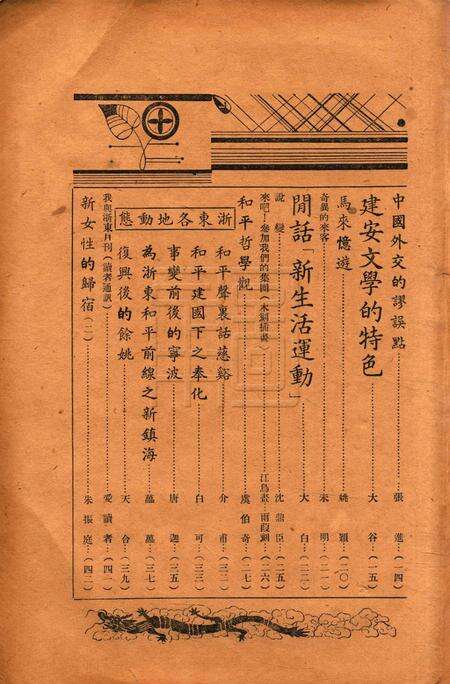 中國外交的謬誤點……張 進…(一四)
建安文學的特色……大 谷…(一五)
馬來憶遊……姚 穎…(二〇)
奇異的來客……未 明…(二一)
閒話「新生活運動」……大 白…(二二)
說 變……沈鼎臣…(二五)
來吧!參加我們的集團(木刻插畫)……江鳥畫…雨葭刻…(二六)
和平哲學觀……虞伯奇…(二七)
浙東各地動態
和平聲裏話慈谿……介 甫…(三二)
和平建國下之奉化……白 可…(三三)
事變前後的寧波……唐 迦…(三五)
為浙東和平前線之新鎮海……蕴 萬…(三七)
復興後的餘姚……天 合…(三九)
我與浙東月刊(讀者通訊)……愛讀者…(四一)
新女性的歸宿(二)……朱振庭…(四二)